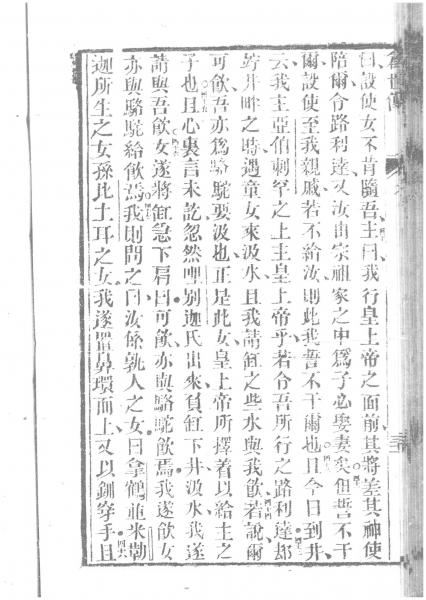 曰設使女不肯隨吾主曰我行皇上帝之面前其將差其神使
陪爾令路利達又汝由宗祖家之中爲子必娶妻矣但誓不干
爾設使至我親戚若不給汝則此我誓不干爾也且今日到井
云我主亞伯剌罕之上主皇上帝乎若令吾所行之路利達却
竚井畔之時遇童女來汲水且我請缸之些水與我飲若說爾
可飲吾亦爲駱駝要汲也正是此女皇上帝所擇着以給主之
子也且心裏言未訖忽然哩別迦氏出來負缸下井汲水我遂
請與吾飲女遂將缸急下肩曰可飲亦與駱駝飲焉我遂飲女
亦與駱駝給飲焉我則問之曰汝係孰人之女曰拿鶴並米勒
迦所生之女孫比土耳之女我遂置鼻環面上又以釧穿手且